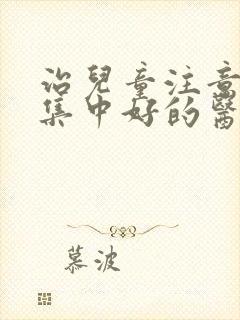 治兒童注意
集中好的醫
慕波